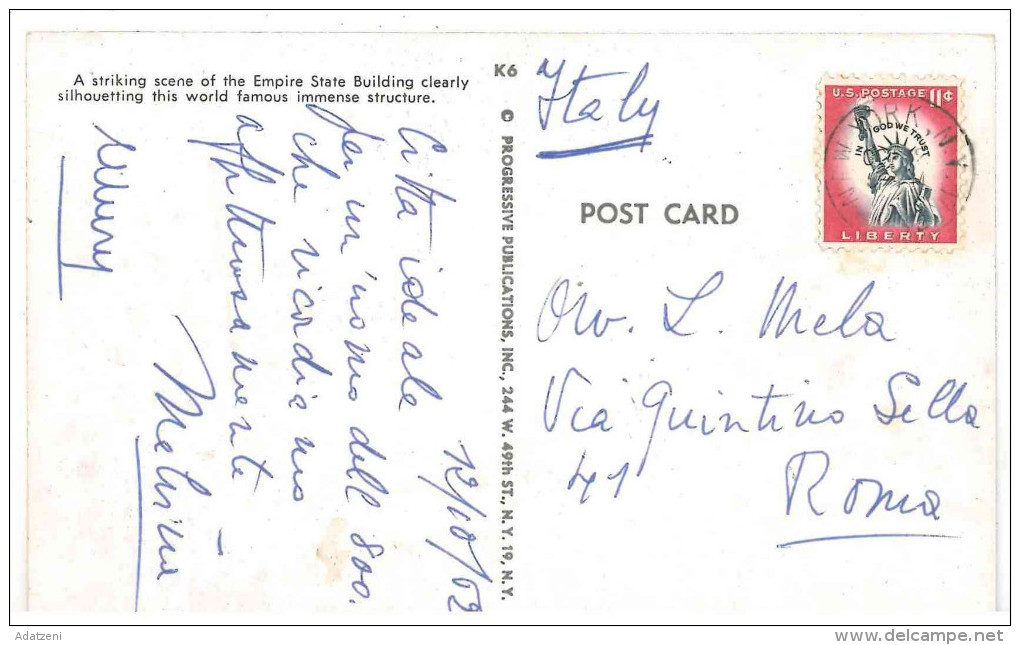 A striking scene of the Empire State Building clearly
silhouetting this world famous immense structure.
K6
© PROGRESSIVE PUBLICATIONS, INC., 244 W. 49th ST., N. Y. 19, N. Y.
Italy
U.S. POSTAGE 11¢
IN GOD WE TRUST
LIBERTY
W YORK, N.Y.
POST CARD
12/10/62
Città ideale
per un'uomo dell'800.
che ricordiamo
affettuosamente
Avv. L. Mela
Via Quintino Sella
41
Roma
Adatzeni
www.delcampe.net